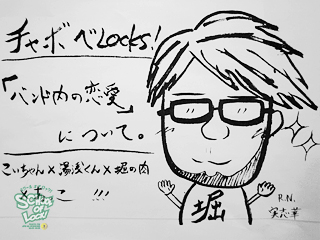 チャボ べLocks!
「バンド内の恋愛」
について。
こいちゃん×湯浅くん×堀の内
まこ !!!
SCHOOL OF LOCK!
堀
R.N.